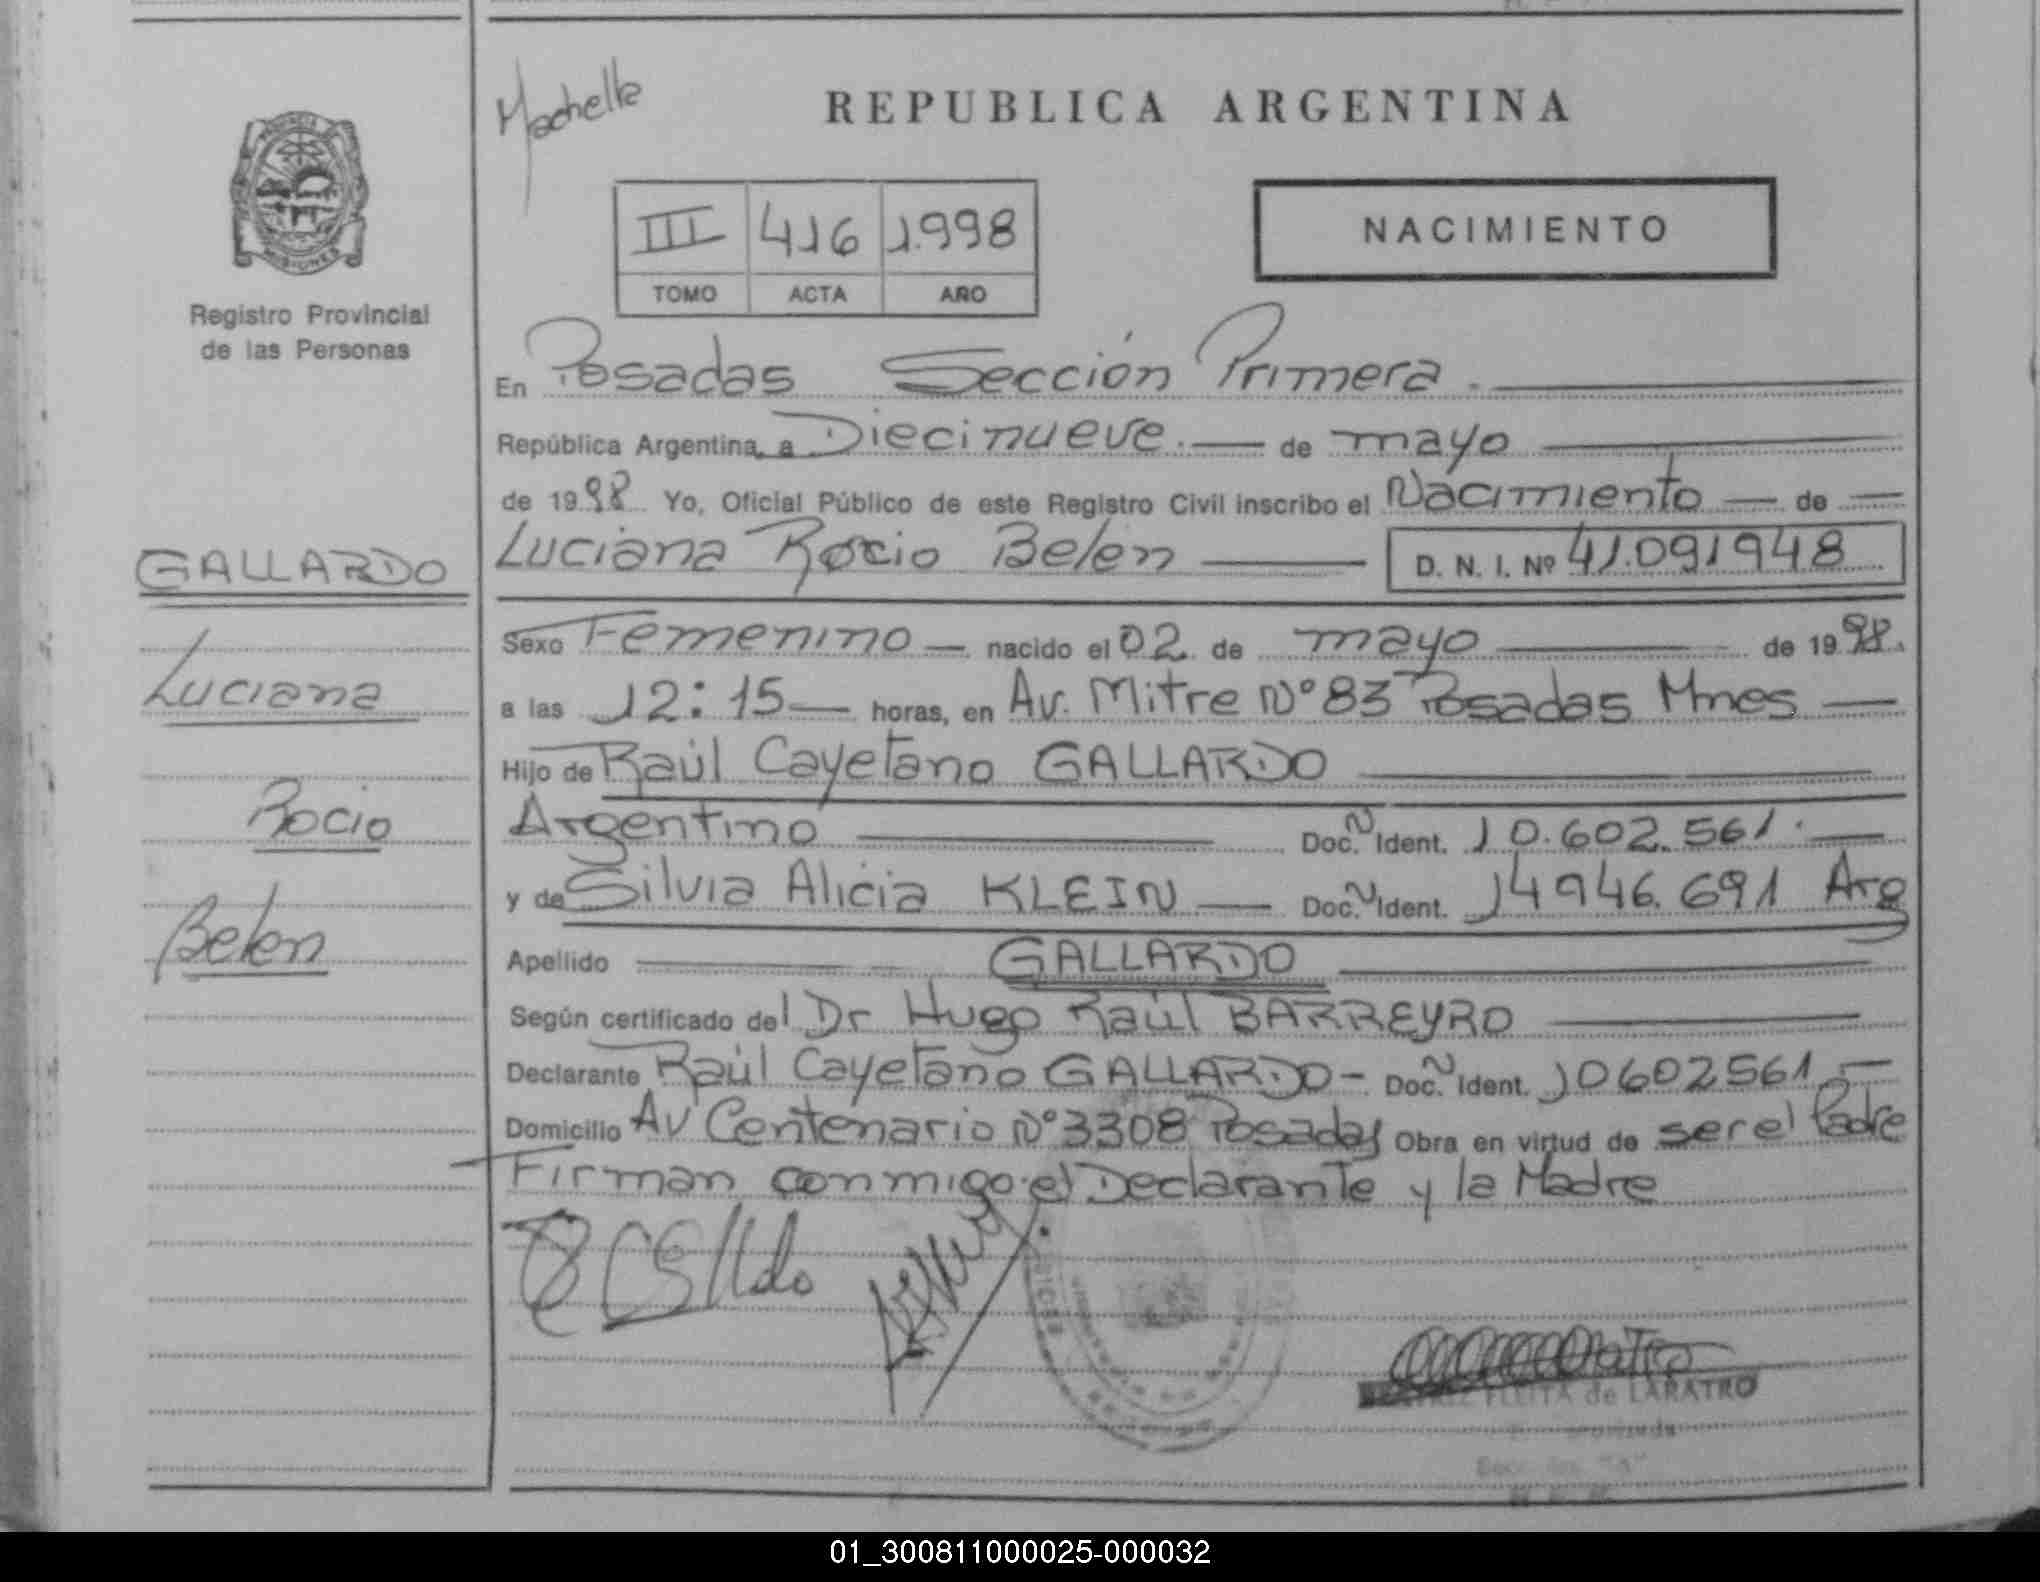 Machelle
REPUBLICA ARGENTINA
PROVINCIA DE
MISIONES
Registro Provincial
de las Personas
III 416 1.998
TOMO ACTA AÑO
NACIMIENTO
En Posadas Sección Primera.
República Argentina, a Diecinueve. de mayo
de 1998 Yo, Oficial Público de este Registro Civil inscribo el Nacimiento de
GALLARDO
Luciana Rocio Belén D. N. I. Nº 41.091948
Sexo Femenino nacido el 02 de mayo de 1998.
Luciana
a las 12:15 horas, en Av. Mitre Nº 83 Posadas Mnes
Hijo de Raúl Cayetano GALLARDO
Rocio
Argentino Doc. N Ident. 10.602.561.
y de Silvia Alicia KLEIN Doc. N Ident. 14946.691 Arg
Belen
Apellido GALLARDO
Según certificado del Dr Hugo Raúl BARREYRO
Declarante Raúl Cayetano GALLARDO- Doc. N Ident. 10602561
Domicilio Av Centenario Nº 3308 Posadas Obra en virtud de ser el Padre
Firman conmigo el Declarante y la Madre
FLEITA de LARATRO
01_300811000025-000032